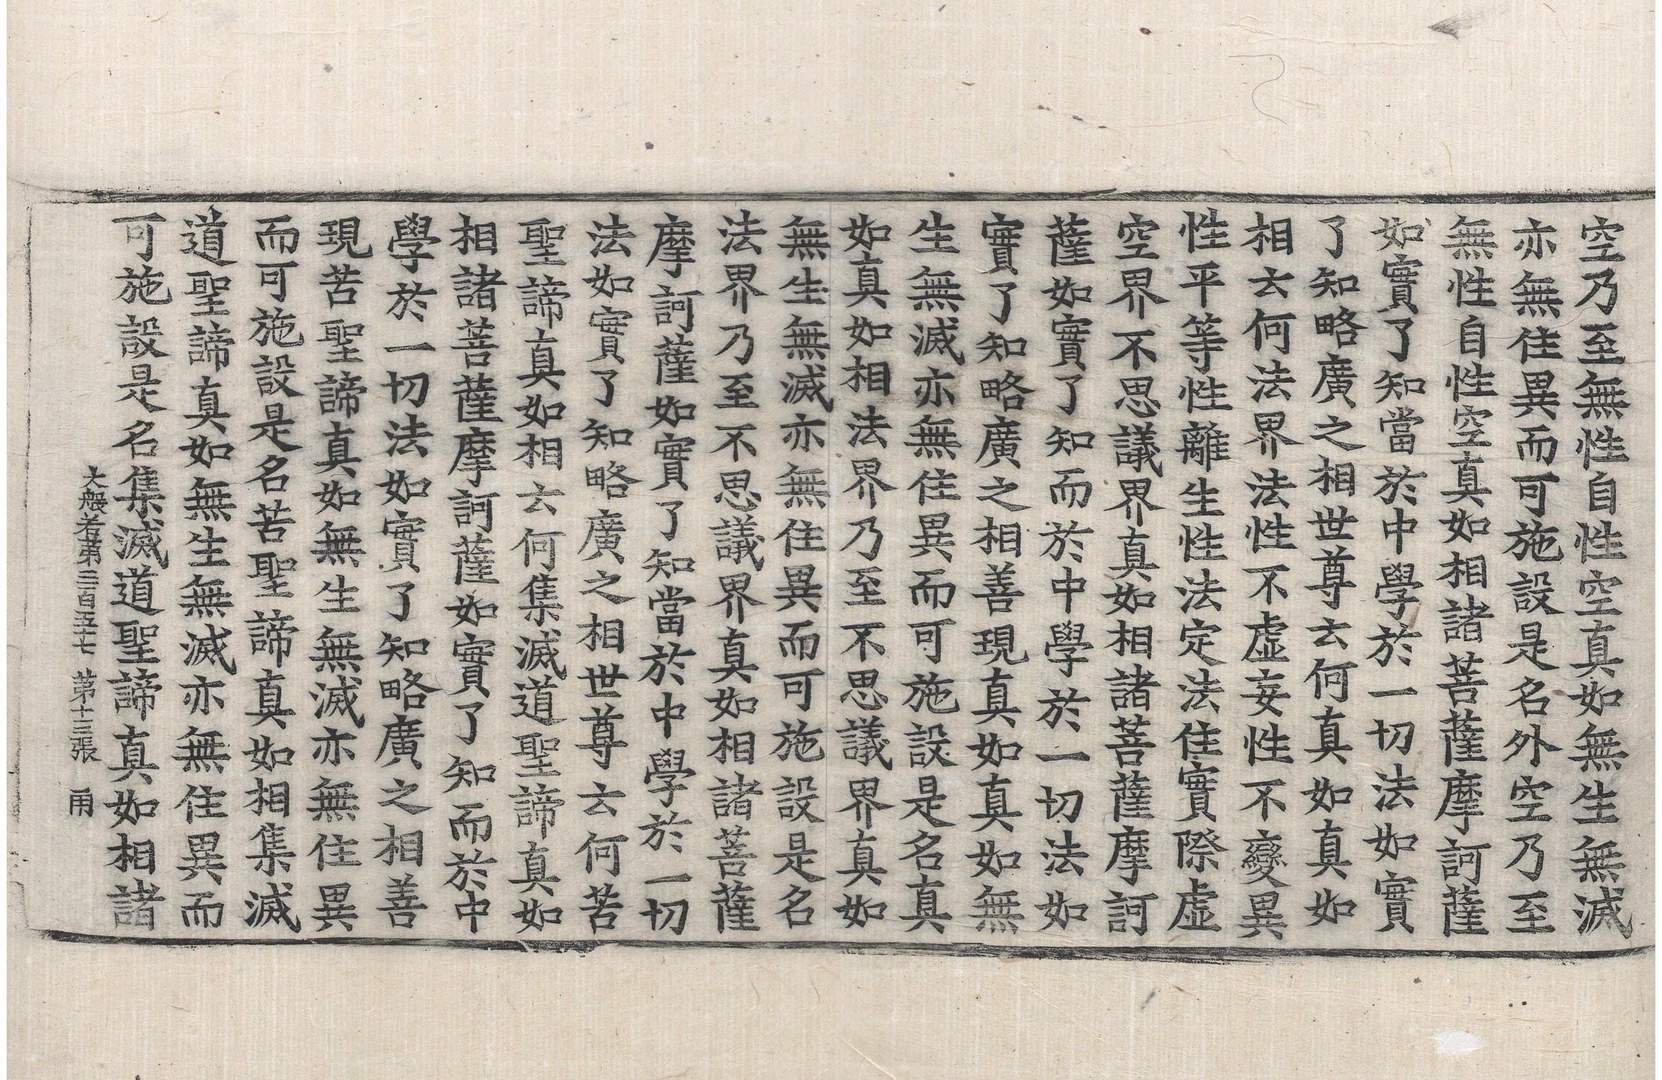 空乃至無性自性空真如無生無滅
亦無住異而可施設是名外空乃至
無性自性空真如相諸菩薩摩訶薩
如實了知當於中學於一切法如實
了知略廣之相世尊云何真如真如
相云何法界法性不虛妄性不變異
性平等性離生性法定法住實際虛
空界不思議界真如相諸菩薩摩訶
薩如實了知而於中學於一切法如
實了知略廣之相善現真如真如無
生無滅亦無住異而可施設是名真
如真如相法界乃至不思議界真如
無生無滅亦無住異而可施設是名
法界乃至不思議界真如相諸菩薩
摩訶薩如實了知當於中學於一切
法如實了知略廣之相世尊云何苦
聖諦真如相云何集滅道聖諦真如
相諸菩薩摩訶薩如實了知而於中
學於一切法如實了知略廣之相善
現苦聖諦真如無生無滅亦無住異
而可施設是名苦聖諦真如相集滅
道聖諦真如無生無滅亦無住異而
可施設是名集滅道聖諦真如相諸
大般若第三百五十七 第十三張 甬